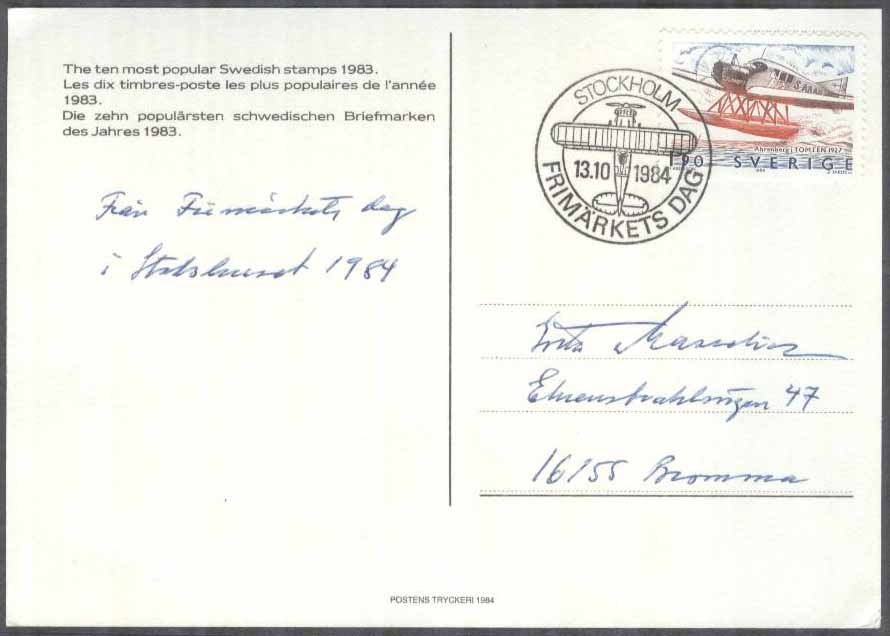 The ten most popular Swedish stamps 1983.
Les dix timbres-poste les plus populaires de l'année
1983.
Die zehn populärsten schwedischen Briefmarken
des Jahres 1983.
Från Frimärkets dag
i Stadshuset 1984
STOCKHOLM
13.10 1984
FRIMÄRKETS DAG
Ahrenberg i TOMTEN 1927
1.90 SVERIGE
47
16155 Bromma
POSTENS TRYCKERI 1984